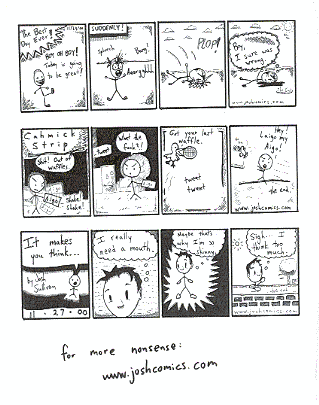 The Best
Day Ever!
BOY OH BOY!
Today is going
to be great!
SUDDENLY!
Splorch
Boom!
Aarrgghhh
PLOP!
Boy,
I sure was
wrong.
www.joshcomics.com
Cahmick
Strip
Shit! Out of
waffles.
Shake!
Shake!
tweet
What the
Got your last
waffle.
tweet
tweet
Hey!
Leggo my
the end.
www.joshcomics.com
It makes
you think...
by Josh
Sullivan
27 · 00
I really
need a mouth.
Maybe that's
why I'm so
skinny.
Sigh... I
think too
much.
www.joshcomics.com
for more nonsense:
www.joshcomics.com